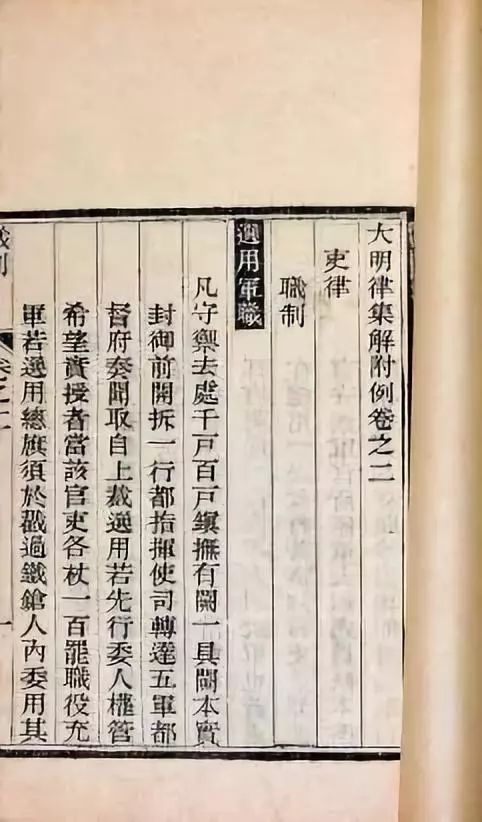 大明律集解附例卷之二
吏律
職制
選用軍職
凡守禦去處千戸百戸鎮撫有闕一具闕本實
封御前開拆一行都指揮使司轉達五軍都
督府奏聞取自上裁選用若先行委人權管
希望實授者當該官吏各杖一百罷職役充
軍若選用總旗須於戳過鐵鎗人內委用其
職制
卷之二
一